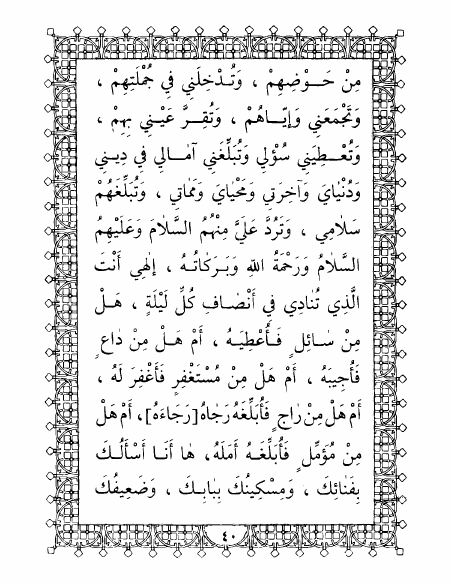 مِنْ حَـــوْضِهِمْ ، وَتُـدْخِلَنِي فِي جُمْلَتِهِمْ ،
وَتَجْمَعَنِي وَإِيَّـاهُمْ ، وَتُقِـرَّ عَيْنِي بِهِمْ ،
وَتُعْـطِيَنِي سُؤْلِي وَتُبَلِّغَنِي آمَـالِي فِي دِينِي
وَدُنْيَايَ وَآخِرَتِي وَمَحْيَايَ وَمَمَاتِي ، وَتُبَلِّغَهُمْ
سَلَامِي ، وَتَرُدَّ عَلَيَّ مِنْهُمُ السَّلَامَ وَعَلَيْهِمُ
السَّلَامُ وَرَحْمَةُ اللهِ وَبَـرَكَاتُـهُ ، إِلٰهِي أَنْتَ
الَّذِي تُنَادِي فِي أَنْصَـافِ كُلِّ لَيْلَةٍ ، هَـلْ
مِنْ سَـائِـلٍ فَـأُعْطِيَـهُ ، أَمْ هَـلْ مِنْ دَاعٍ
فَأُجِيبَهُ ، أَمْ هَلْ مِنْ مُسْتَغْفِرٍ فَأَغْفِرَ لَهُ ،
أَمْ هَلْ مِنْ رَاجٍ فَأُبَلِّغَهُ رَجَاهُ [رَجَاءَهُ] ، أَمْ هَلْ
مِنْ مُؤَمِّلٍ فَأُبَلِّغَـهُ أَمَلَهُ ، هَا أَنَـا أَسْأَلُـكَ
بِفَنَائِكَ ، وَمِسْكِينُكَ بِبَابِـكَ ، وَضَعِيفُكَ
٤٠